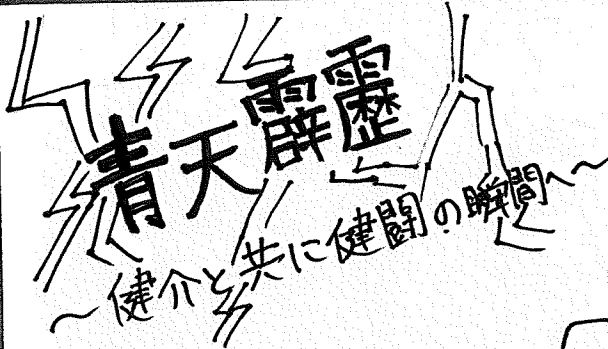 青天霹靂
～健介と共に健闘の瞬間～